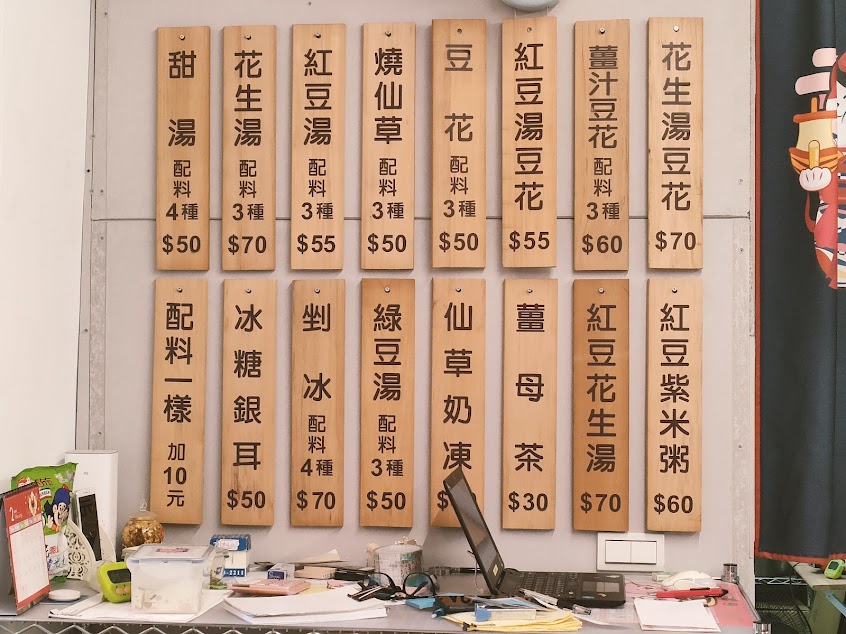 花生湯豆花 $70
薑汁豆花 配料3種 $60
紅豆湯豆花 $55
豆花 配料3種 $50
燒仙草 配料3種 $50
紅豆湯 配料3種 $55
花生湯 配料3種 $70
甜湯 配料4種 $50
紅豆紫米粥 $60
紅豆花生湯 $70
薑母茶 $30
仙草奶凍 $
綠豆湯 配料3種 $50
剉冰 配料4種 $70
冰糖銀耳 $50
配料一樣 加10元